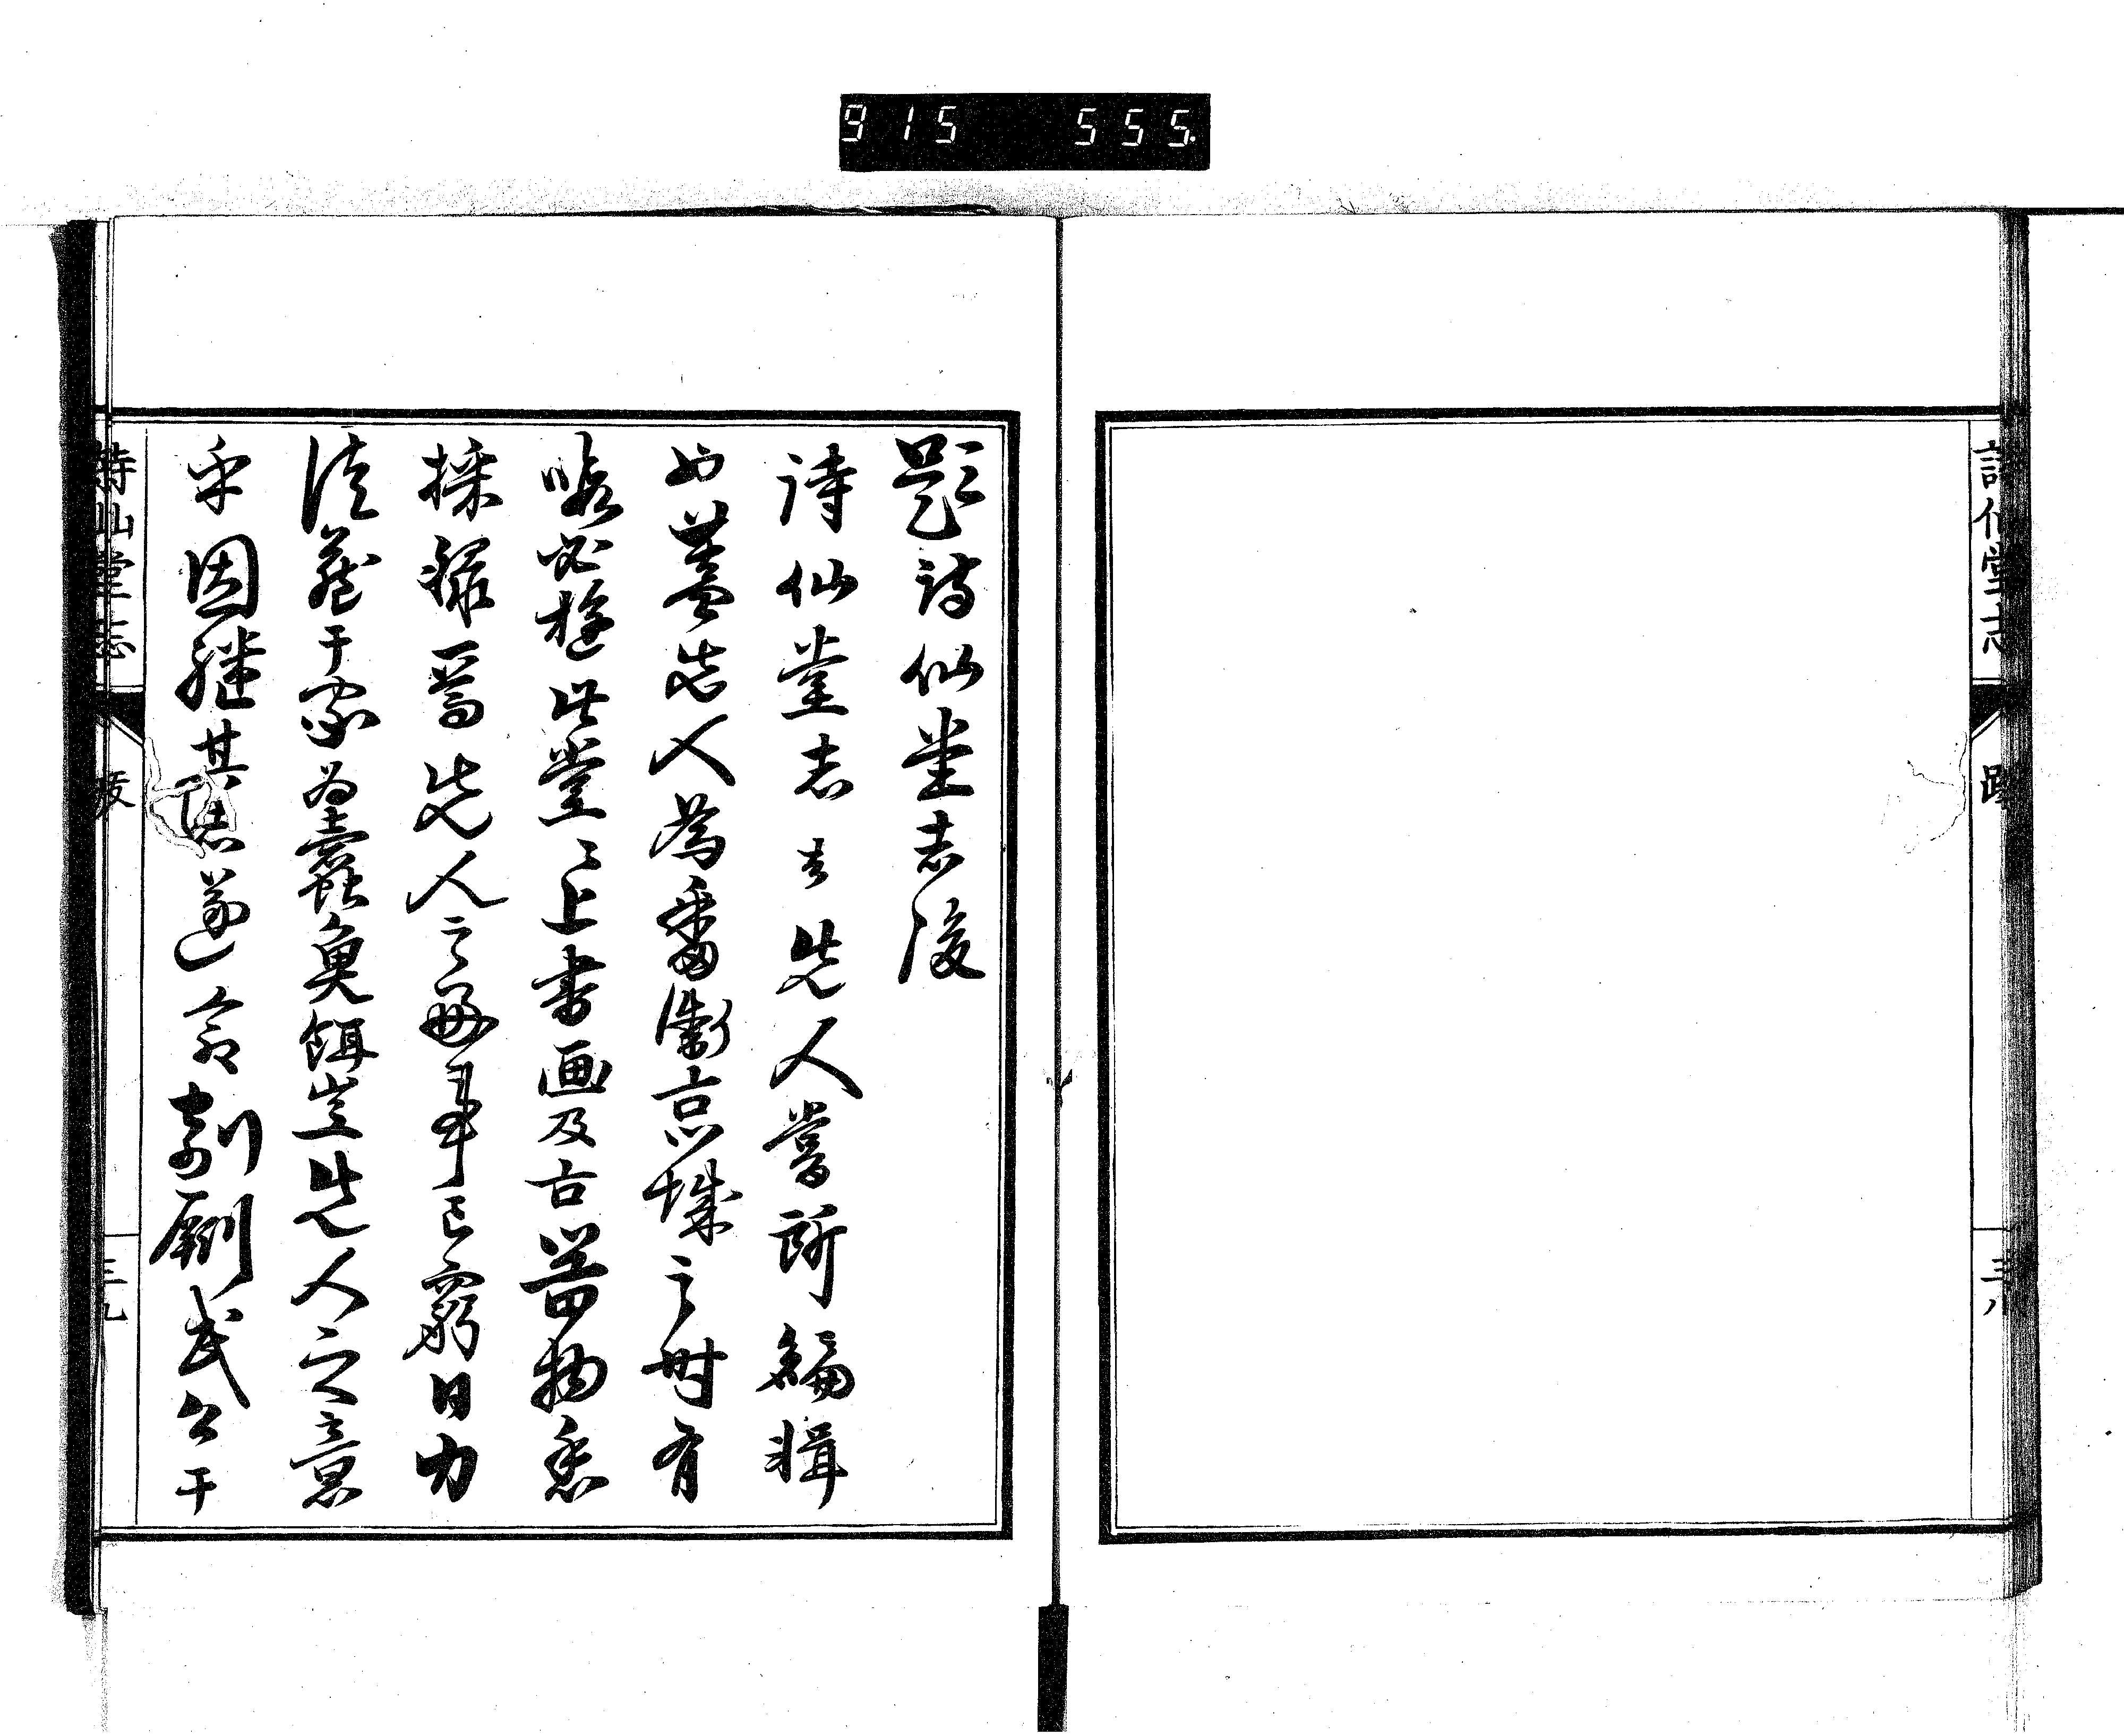 915 555.
詩仙堂志 跋 三八
題詩仙堂志後
詩仙堂志者先人嘗所編輯
也蓋先人為番衛京城之時有
暇必遊此堂〻上書画及古器物悉
採録焉先人之好事已窮日力
徒藏于家為蠹魚餌豈先人之意
乎因継其志遂命剞劂氏公于
詩仙堂志 跋 三九